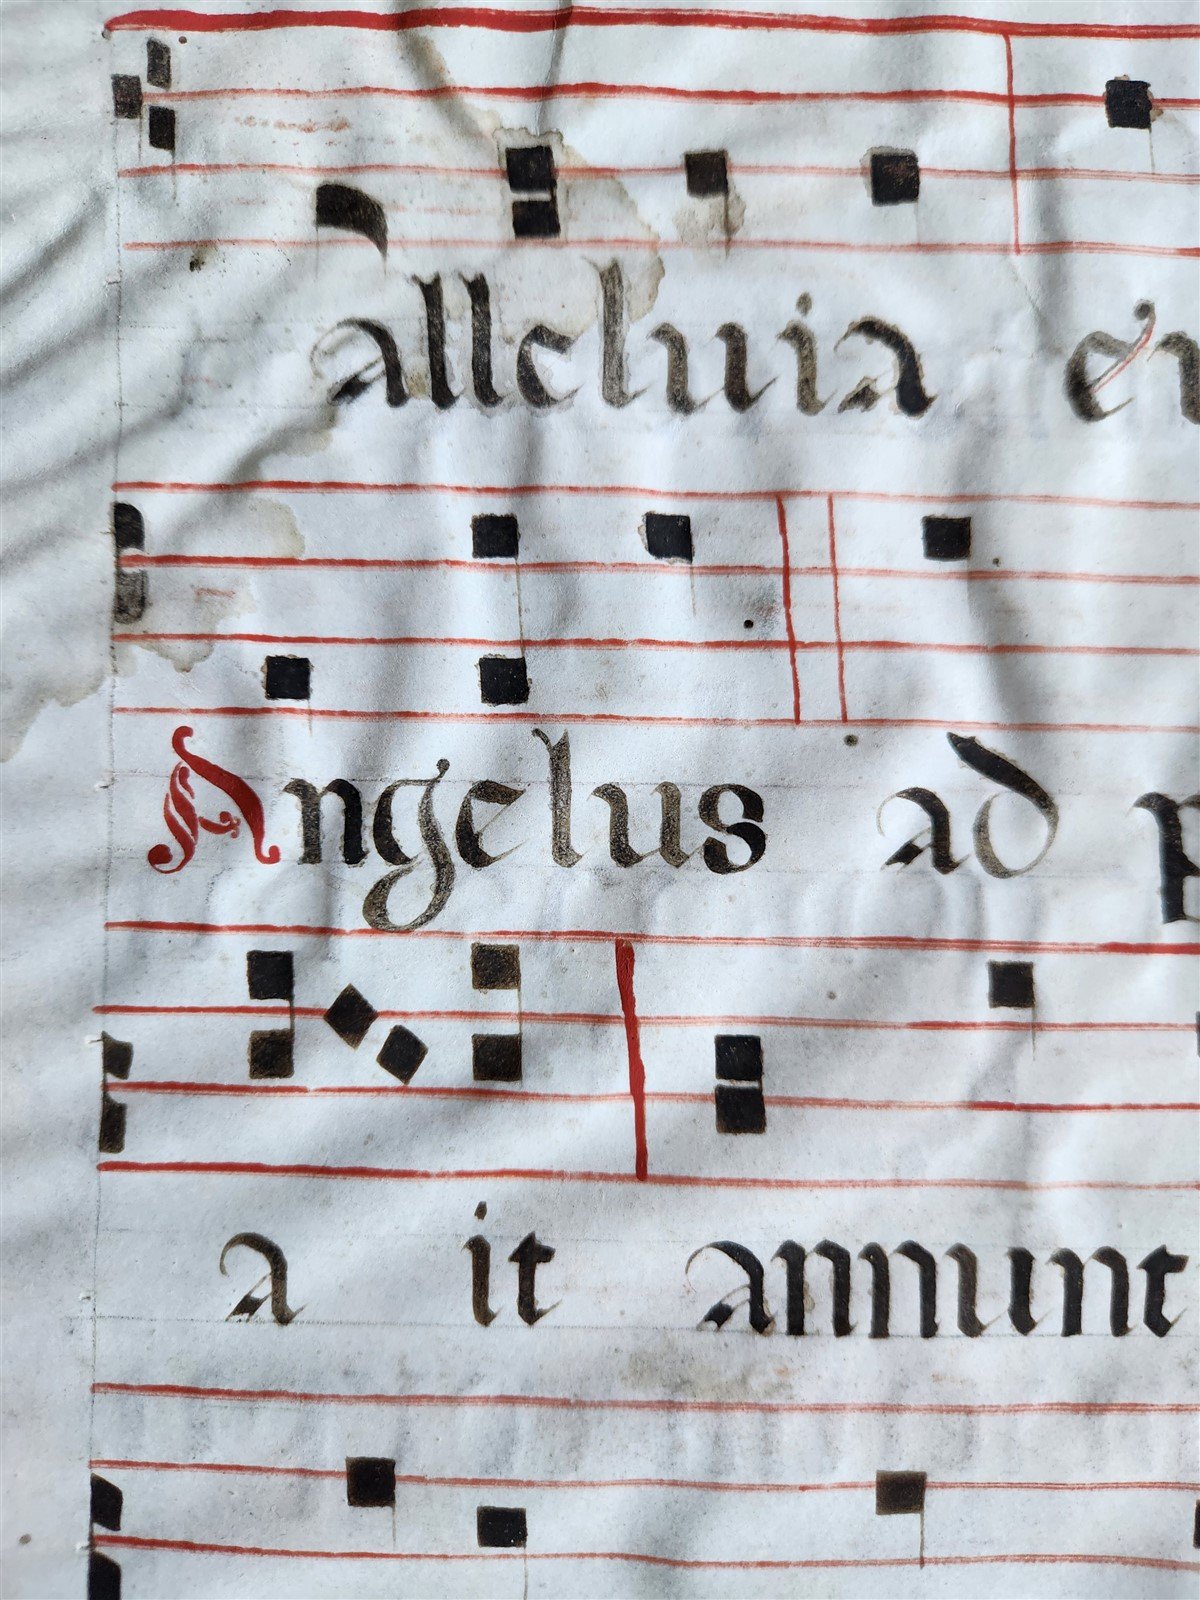 alleluia eu
Angelus ad p
a it annunt